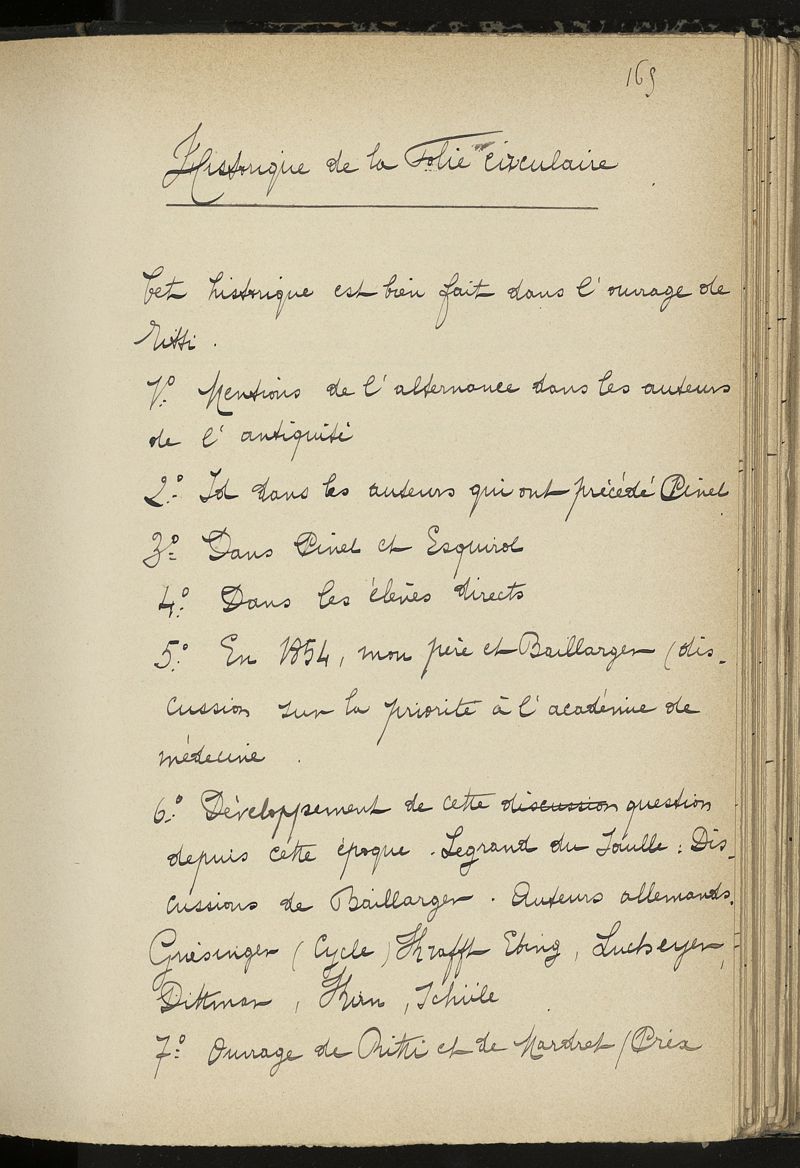 169
Historique de la Folie circulaire
Cet historique est bien fait dans l'ouvrage de
Ritti.
1º Mentions de l'alternance dans les auteurs
de l'antiquité
2º Id dans les auteurs qui ont précédé Pinel
3º Dans Pinel et Esquirol
4º Dans les élèves directs
5º En 1854, mon père et Baillarger (dis-
cussion sur la priorité à l'académie de
médecine.
6º Développement de cette discussion question
depuis cette époque. Legrand du Saulle: Dis-
cussions de Baillarger. Auteurs allemands.
Griesinger (Cycle) Krafft Ebing,
Dittmar, Kirn, Schüle
7º Ouvrage de Ritti et de Mordret (Prix